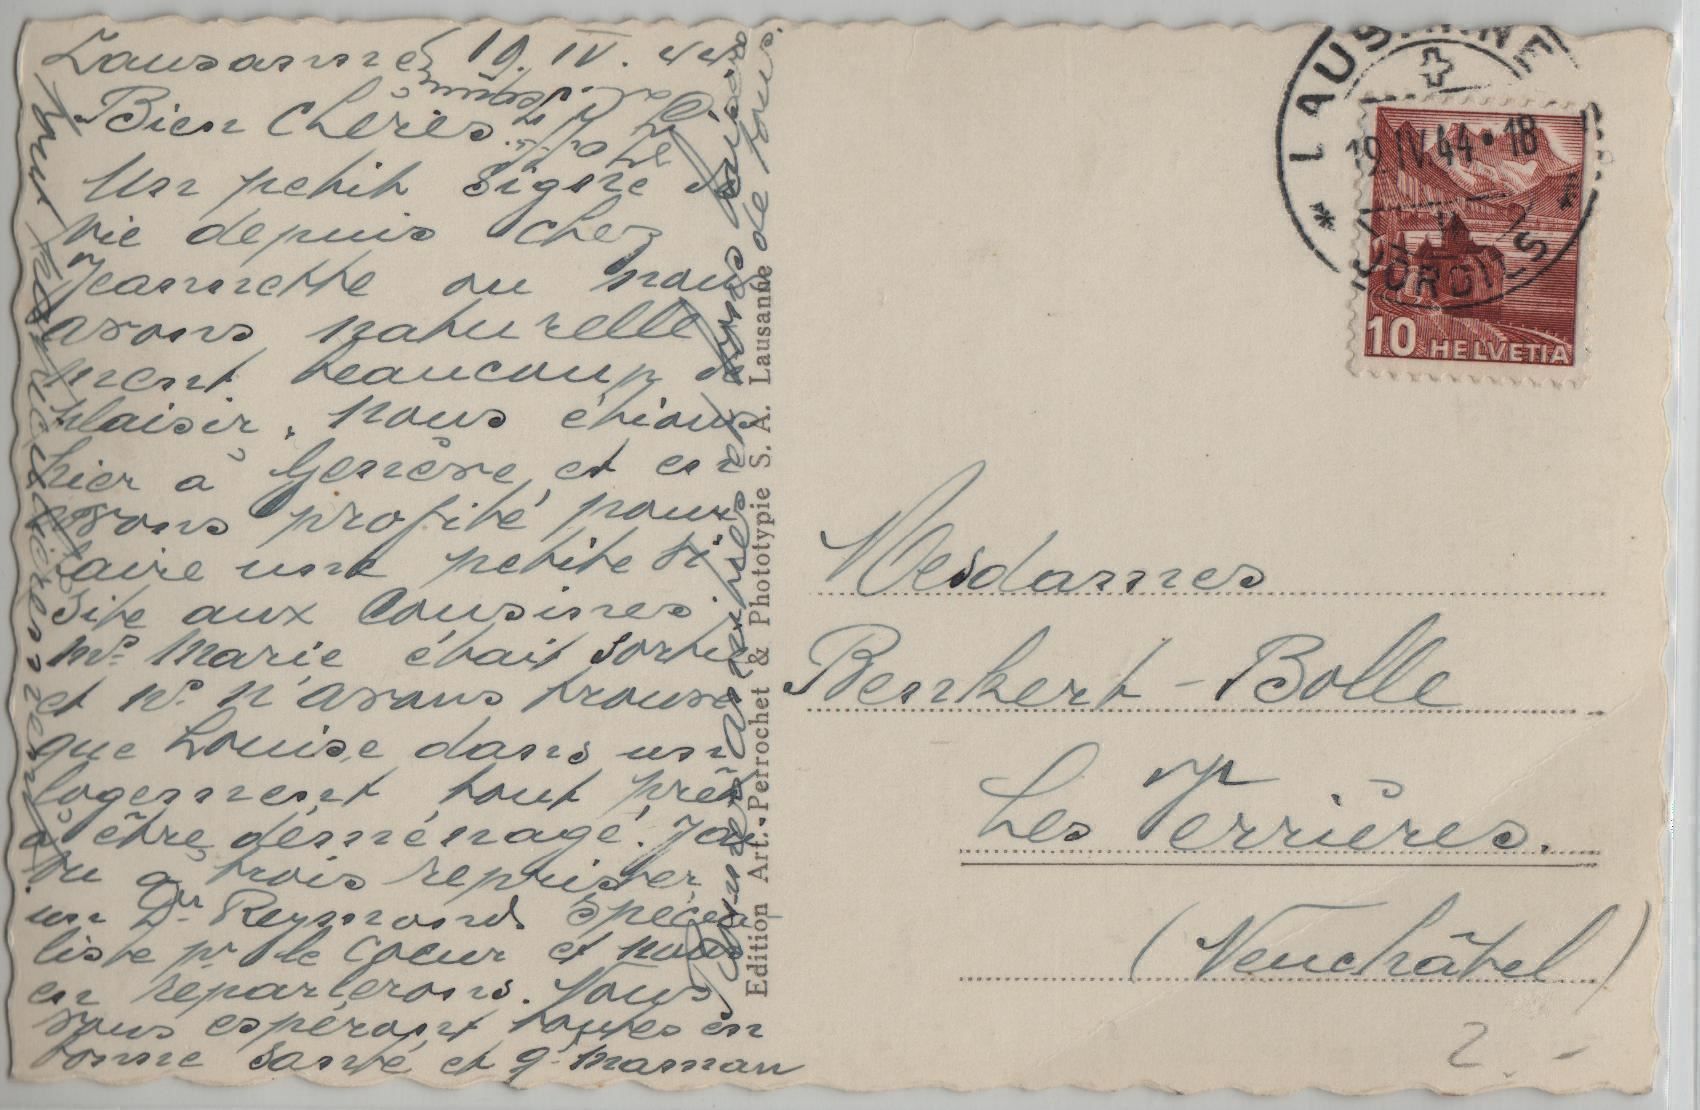 Lausanne, 19. IV. 44
Bien Chères
Un petit signe de
vie depuis chez
Jeannette ou nous
avons naturelle
ment beaucoup de
plaisir, nous étions
hier à Genève et en
avons profité pour
faire une petite vi
site aux cousines.
Ms Marie était sortie
et ns n'avons trouvé
que Louise dans un
logement tout prêt
à être déménagé. J'ai
vu à trois reprises
un Dr Reymond spécia
liste pr le coeur et nous
en reparlerons. Nous
vous espérons toutes en
bonne santé et gd maman
tout
Pensées et bons baisers
de tous.
Edition Art. Perrochet & Phototypie S. A. Lausanne
LAUSANNE
19 IV 44 • 18
JORDILS
10 HELVETIA
Mesdames
Benkert-Bolle
Les Verrières.
(Neuchâtel)
2.-